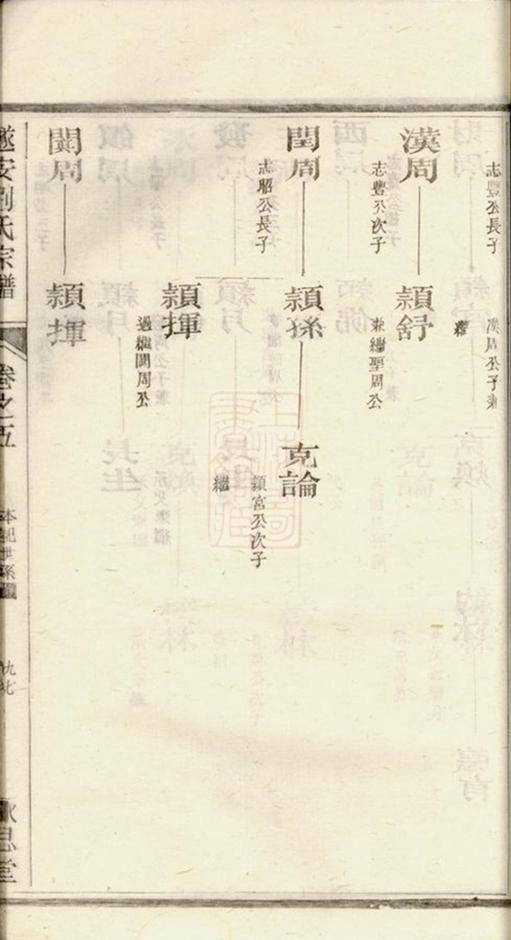 志豐公長子
漢周公子兼
祧
漢周
志豐公次子
穎舒
兼繼聖周公
閏周
志昭公長子
穎孫
克論
穎宮公次子
繼
穎揮
過繼闓周公
穎揮
遂安劉氏宗譜
卷之五
本配世系圖
九七